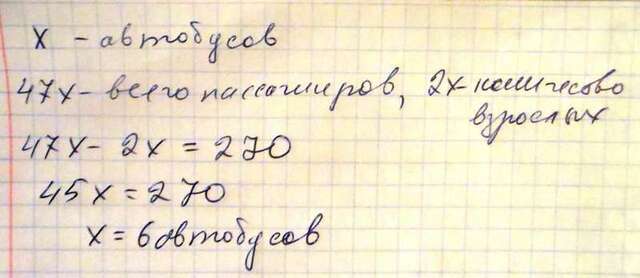 x - автобусов
47x - всего пассажиров, 2x - количесово
взрослых
47x - 2x = 270
45x = 270
x = 6 автобусов